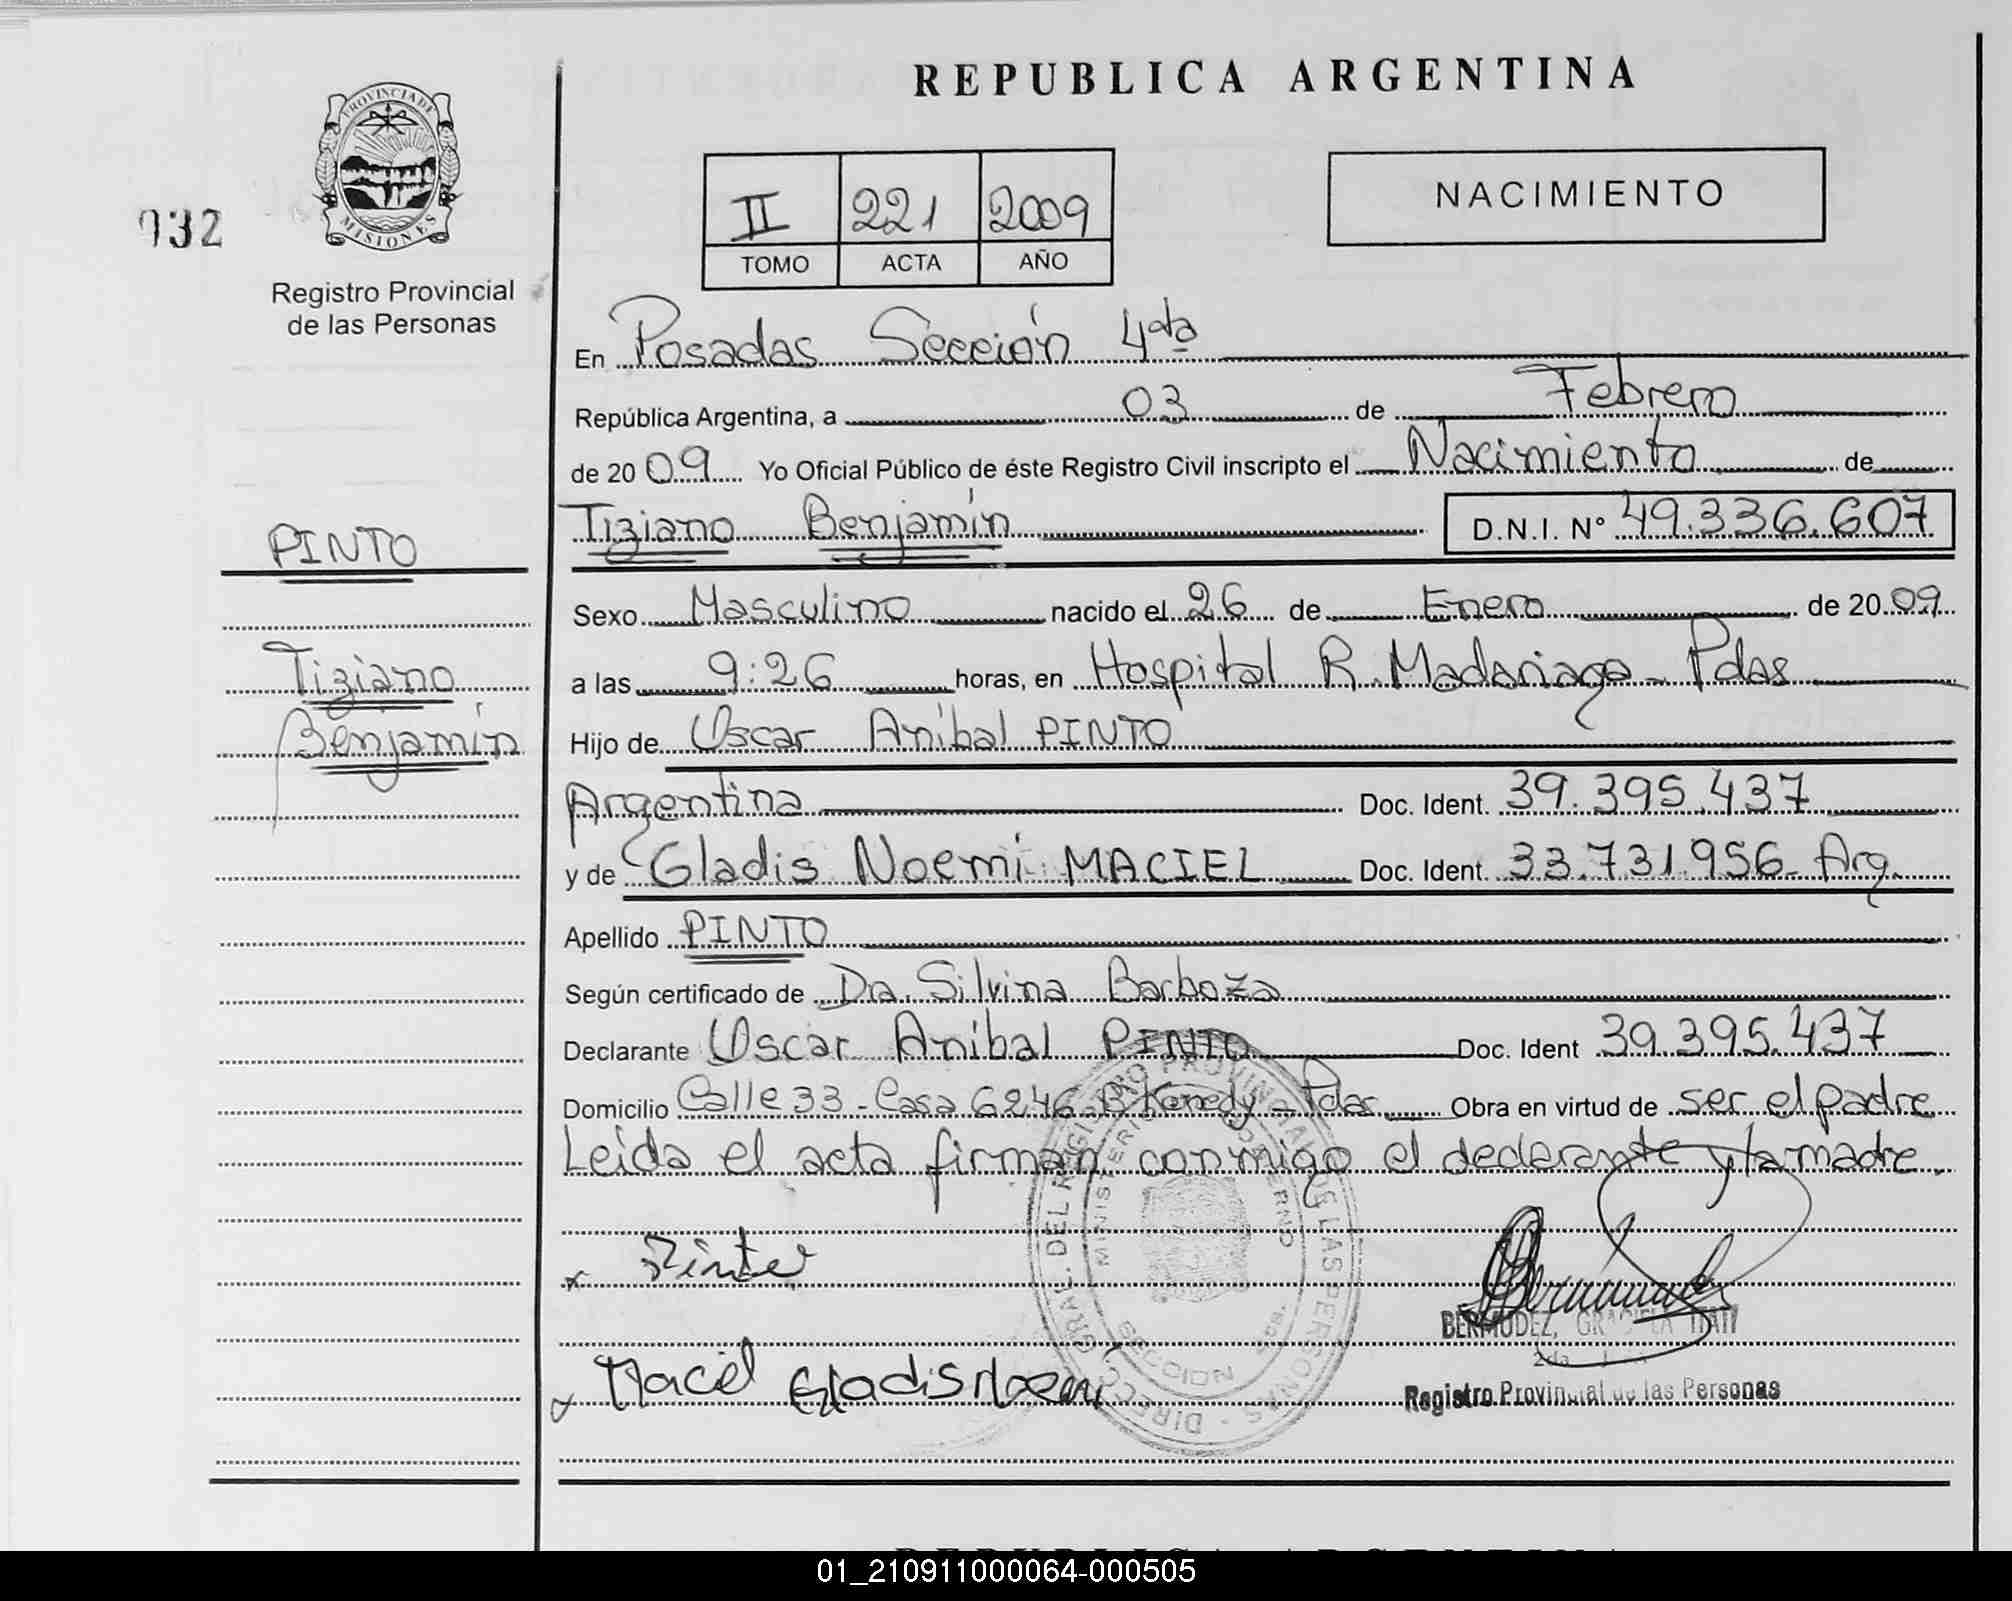 REPUBLICA ARGENTINA
PROVINCIA DE
MISIONES
932
Registro Provincial
de las Personas
II 221 2009
TOMO ACTA AÑO
NACIMIENTO
En Posadas Sección 4ta
República Argentina, a 03 de Febrero
de 2009 Yo Oficial Público de éste Registro Civil inscripto el Nacimiento de
Tiziano Benjamín D.N.I. Nº 49.336.607
PINTO
Tiziano
Benjamín
Sexo Masculino nacido el 26 de Enero de 2009
a las 9:26 horas, en Hospital R. Madariaga - Pdas
Hijo de Oscar Aníbal PINTO
Argentina Doc. Ident. 39.395.437
y de Gladis Noemi MACIEL Doc. Ident. 33.731.956 - Arg.
Apellido PINTO
Según certificado de Dra. Silvina Barboza
Declarante Oscar Aníbal PINTO Doc. Ident 39.395.437
Domicilio Calle 33 - Casa 6246 - Bº Kenedy - Pdas Obra en virtud de ser el padre
Leida el acta firman conmigo el declarante y la madre.
DIRECC. GRAL. DEL REGISTRO PROVINCIAL DE LAS PERSONAS
MINISTERIO GOBIERNO
x Pinto
BERMUDEZ, GRACIELA ITATI
Maciel Gladis Noemi
Registro Provincial de las Personas
01_210911000064-000505